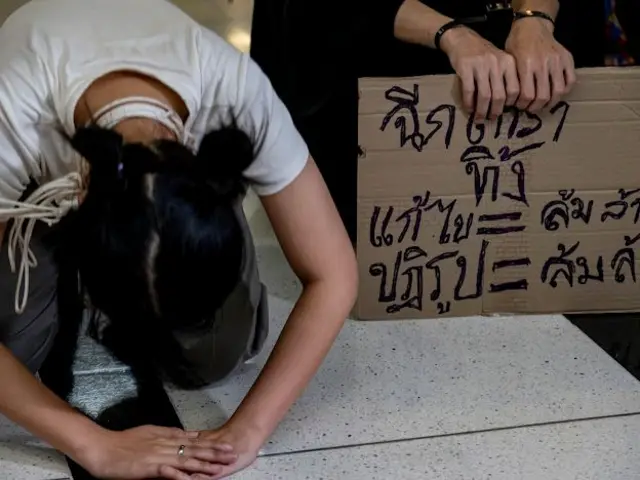 ฉีก
ทิ้ง
แก้ไข = ล้มล้า
ปฏิรูป = ล้มล้